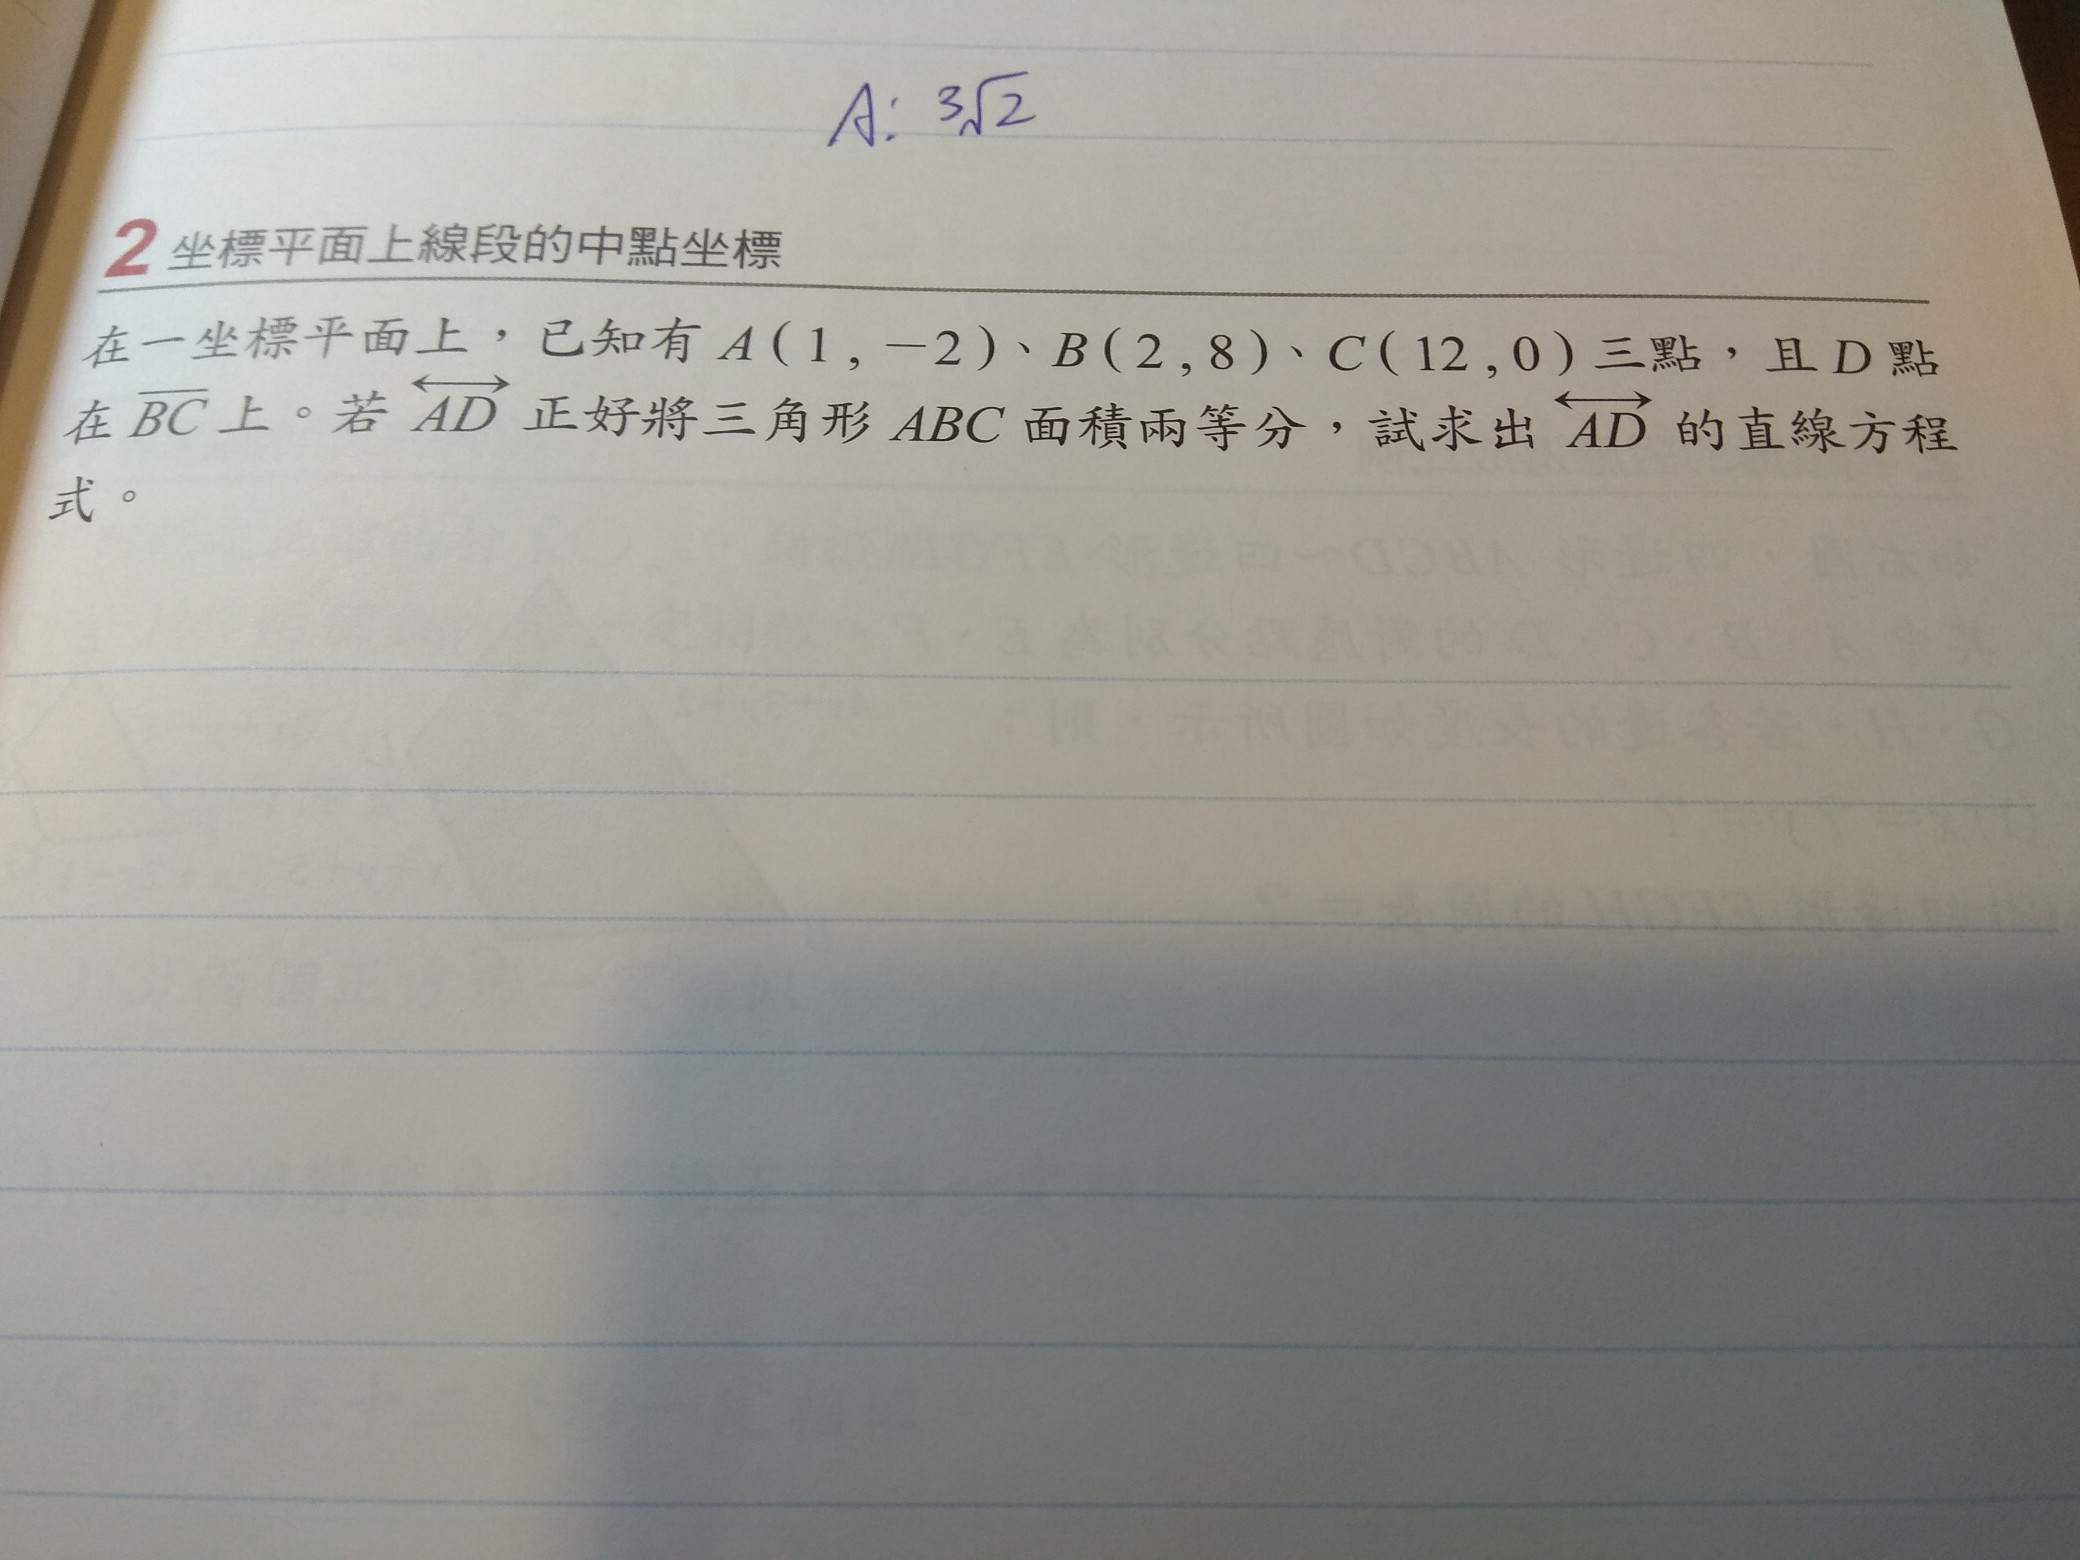 A: 3√2
2 坐標平面上線段的中點坐標
在一坐標平面上，已知有 A(1,－2)、B(2,8)、C(12,0)三點，且D點
在 B̅C̅ 上。若 A͡D 正好將三角形 ABC 面積兩等分，試求出 A͡D 的直線方程
式。